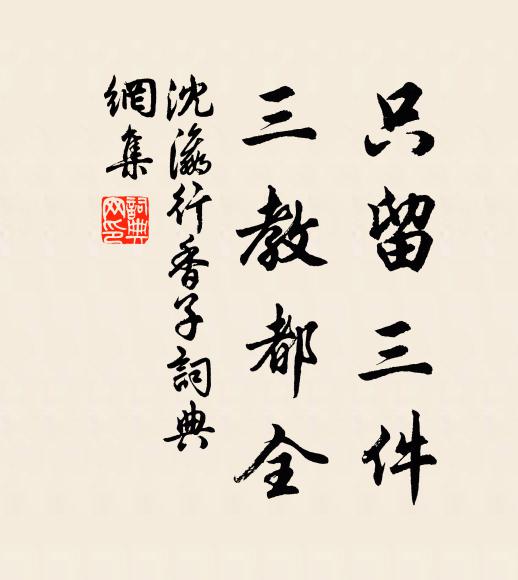 只留三件
三教都全
沈瀛行香子詞典
網集
詞典
网印